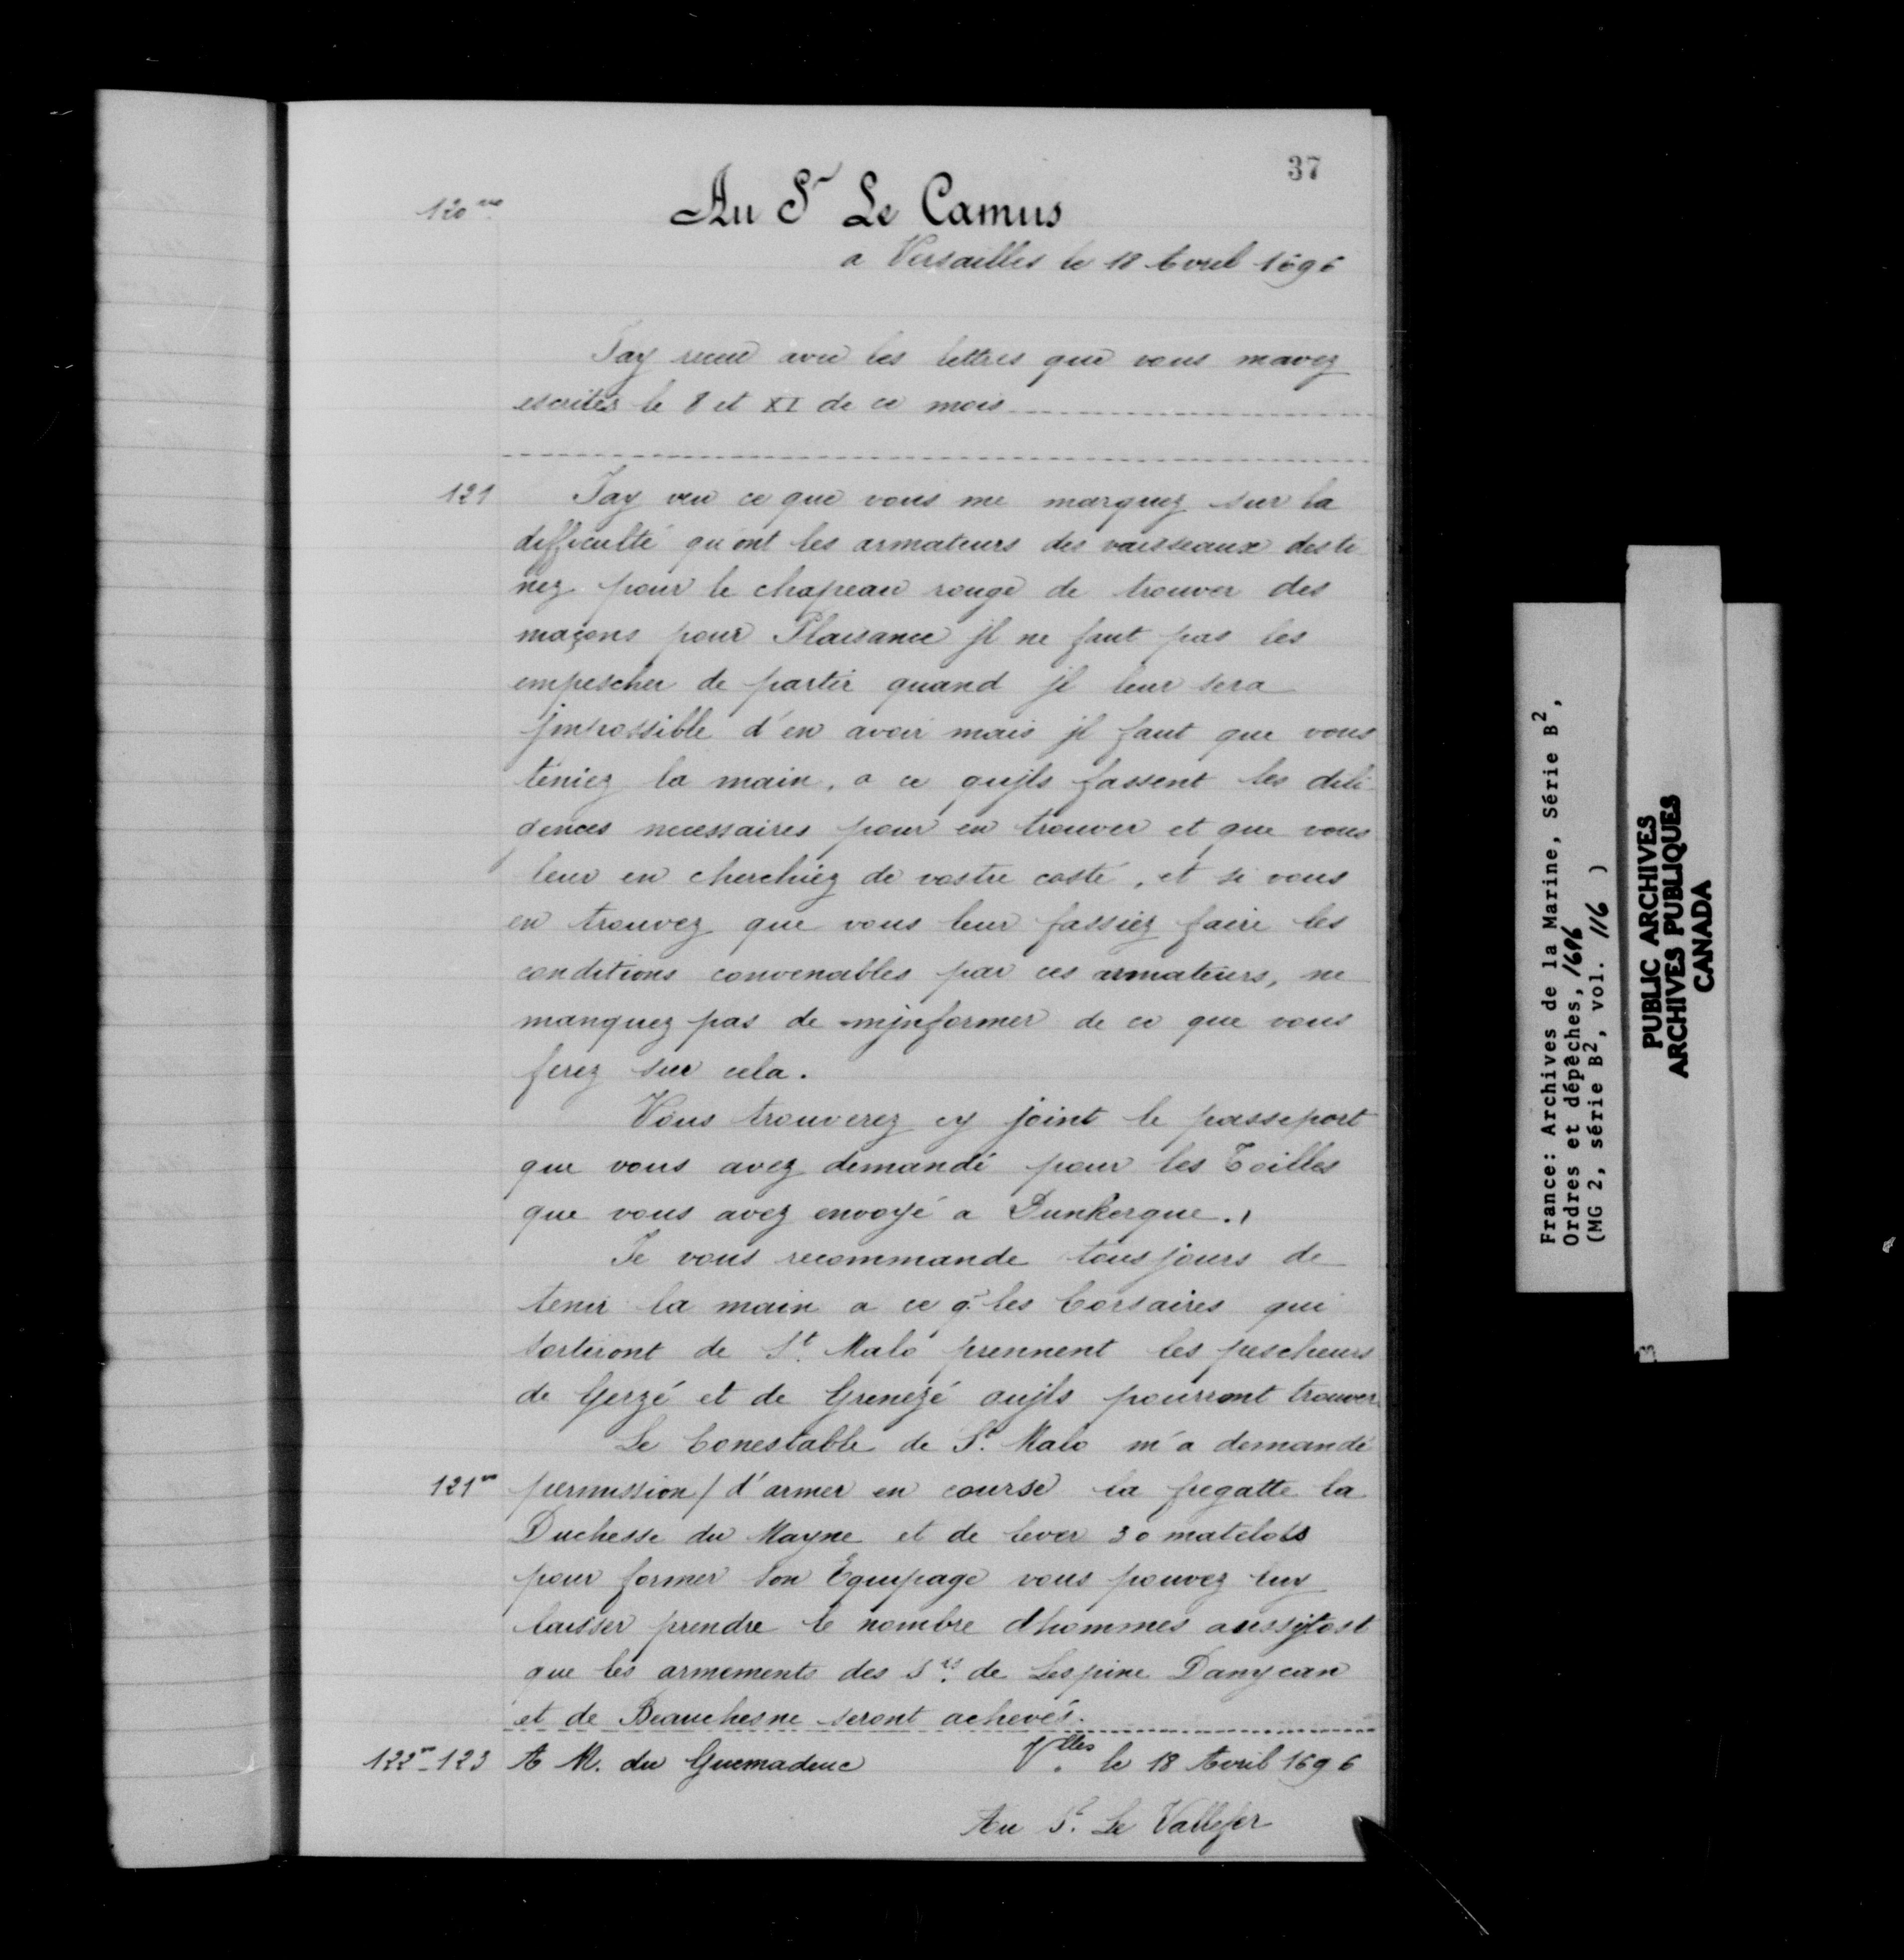 37
120 vo
Au Sr Le Camus
a Versailles le 18 Avril 1696
Jay receu avec les lettres que vous mavez
escrites le 8 et XI de ce mois
121 Jay veu ce que vous me marquez sur la
difficulté qu'ont les armateurs des vaisseaux desti
nez pour le chapeau rouge de trouver des
maçons pour Plaisance jl ne faut pas les
empescher de partir quand jl leur sera
jmpossible d'en avoir mais jl faut que vous
teniez la main, a ce qujls fassent les dili
gences necessaires pour en trouver et que vous
leur en cherchiez de vostre costé, et si vous
en trouvez que vous leur fassiez faire les
conditions convenables par ces armateurs, ne
manquez pas de mjnformer de ce que vous
ferez sur cela.
Vous trouverez cy joint le passeport
que vous avez demandé pour les Toilles
que vous avez envoyé a Dunkerque.
Je vous recommande tousjours de
tenir la main a ce q. les Corsaires qui
sortiront de St. Malo prennent les pescheurs
de Gerzé et de Grenezé qujls pourront trouver
Le Conestable de St. Malo m'a demandé
121 vo permission / d'armer en course la fregatte la
Duchesse du Mayne et de lever 30 matelots
pour former son Equipage vous pouvez luy
laisser prendre le nombre dhommes aussytost
que les armements des Srs. de Lespine Danycan
et de Beauchesne seront achevés.
122 vo-123 A M. du Guemadeuc Vlles. le 18 Avril 1696
Au Sr. Le Vallefer
France: Archives de la Marine, Série B2,
Ordres et dépêches, 1696
(MG 2, série B2, vol. 116 )
PUBLIC ARCHIVES
ARCHIVES PUBLIQUES
CANADA